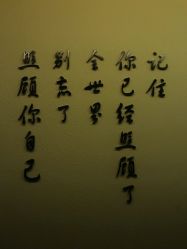 记住
你已经照顾了
全世界
别忘了
照顾你自己